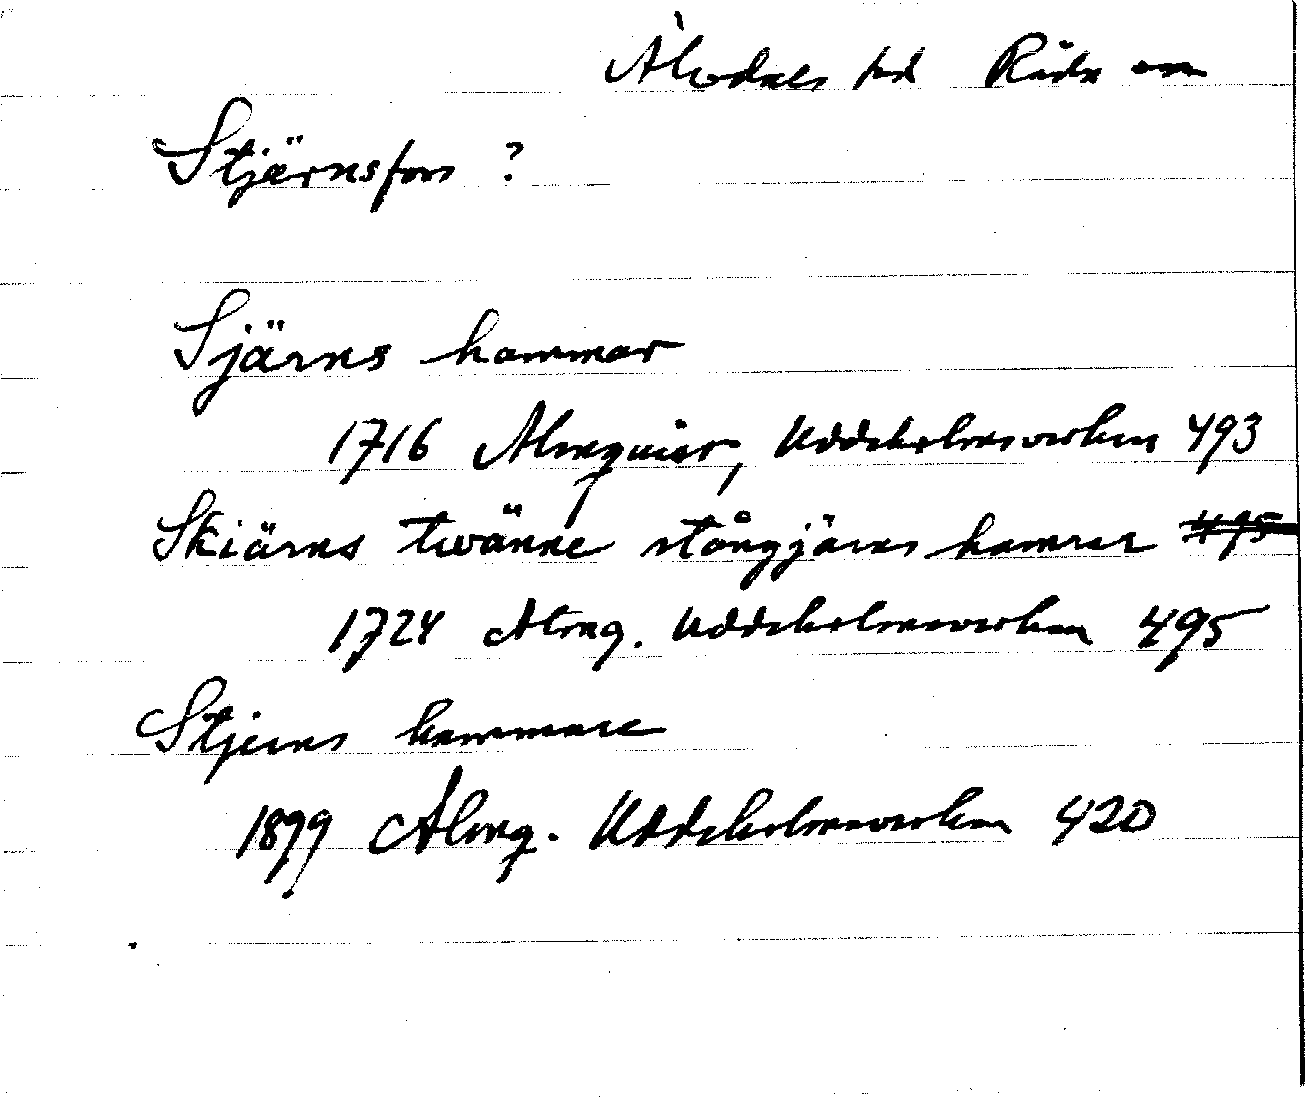 Älvdals hd Råda sn
Stjärnsfors ?
Sjärns hammar
1716 Almquist, Uddeholmsverken 493
Skiärns twänne stångjärns hamrar 495
1724 Almq. Uddeholmsverken 495
Stjerns hammare
1899 Almq. Uddeholmsverken 420